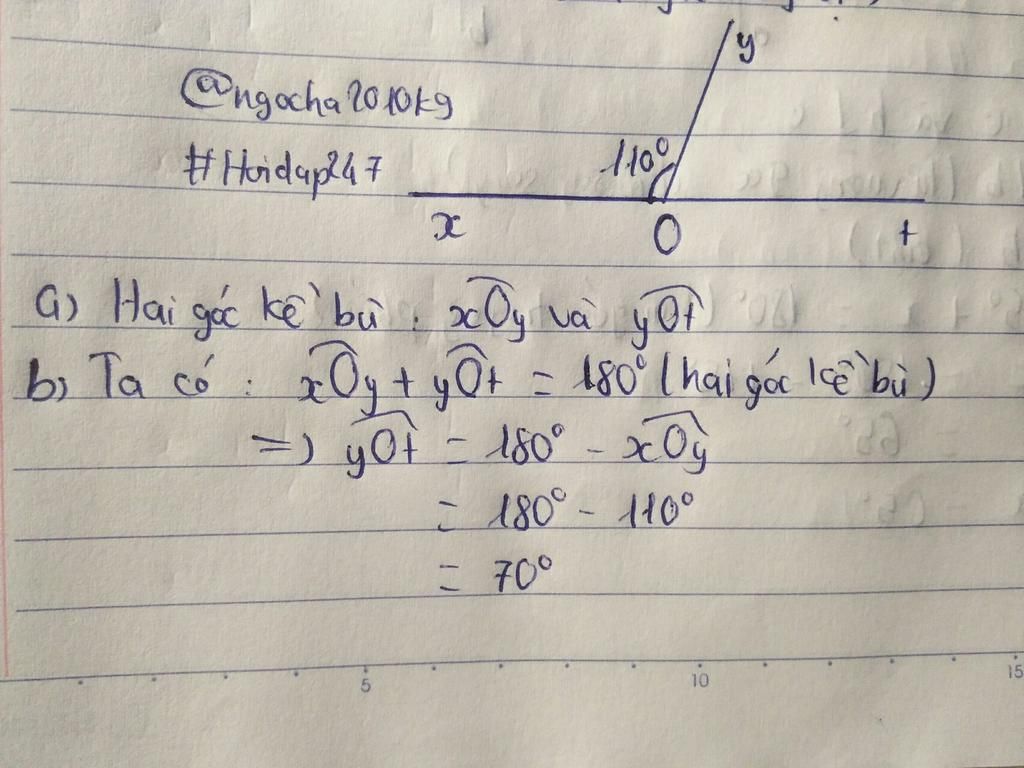 y
@ngocha2010kg
110°
#Hoidap247
x
O
t
a) Hai góc kề bù : xOy và yOt
b) Ta có : xOy + yOt = 180° (hai góc kề bù)
=) yOt = 180° - xOy
= 180° - 110°
= 70°
5
10
15